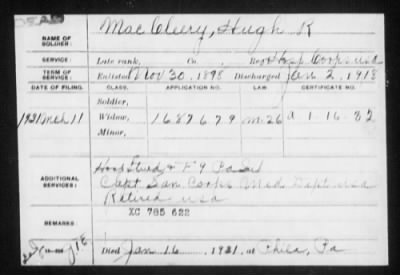 DEAD
NAME OF SOLDIER: Mac Cleery, Hugh R
SERVICE: Late rank, Co. Reg't Hosp Corps USA
TERM OF SERVICE: Enlisted Nov 30, 1898 Discharged Jan 2, 1918
DATE OF FILING. CLASS. APPLICATION NO. LAW. CERTIFICATE NO.
Soldier,
1921 Mch 11 Widow, 1687679 M-26 A-1-16-82
Minor,
ADDITIONAL SERVICES: Hosp Stwd & F 9 Pa Inf
Capt San Corps Med Dept USA
Retired USA
XC 785 622
REMARKS:
Died Jan 16, 1921, at Phila, Pa